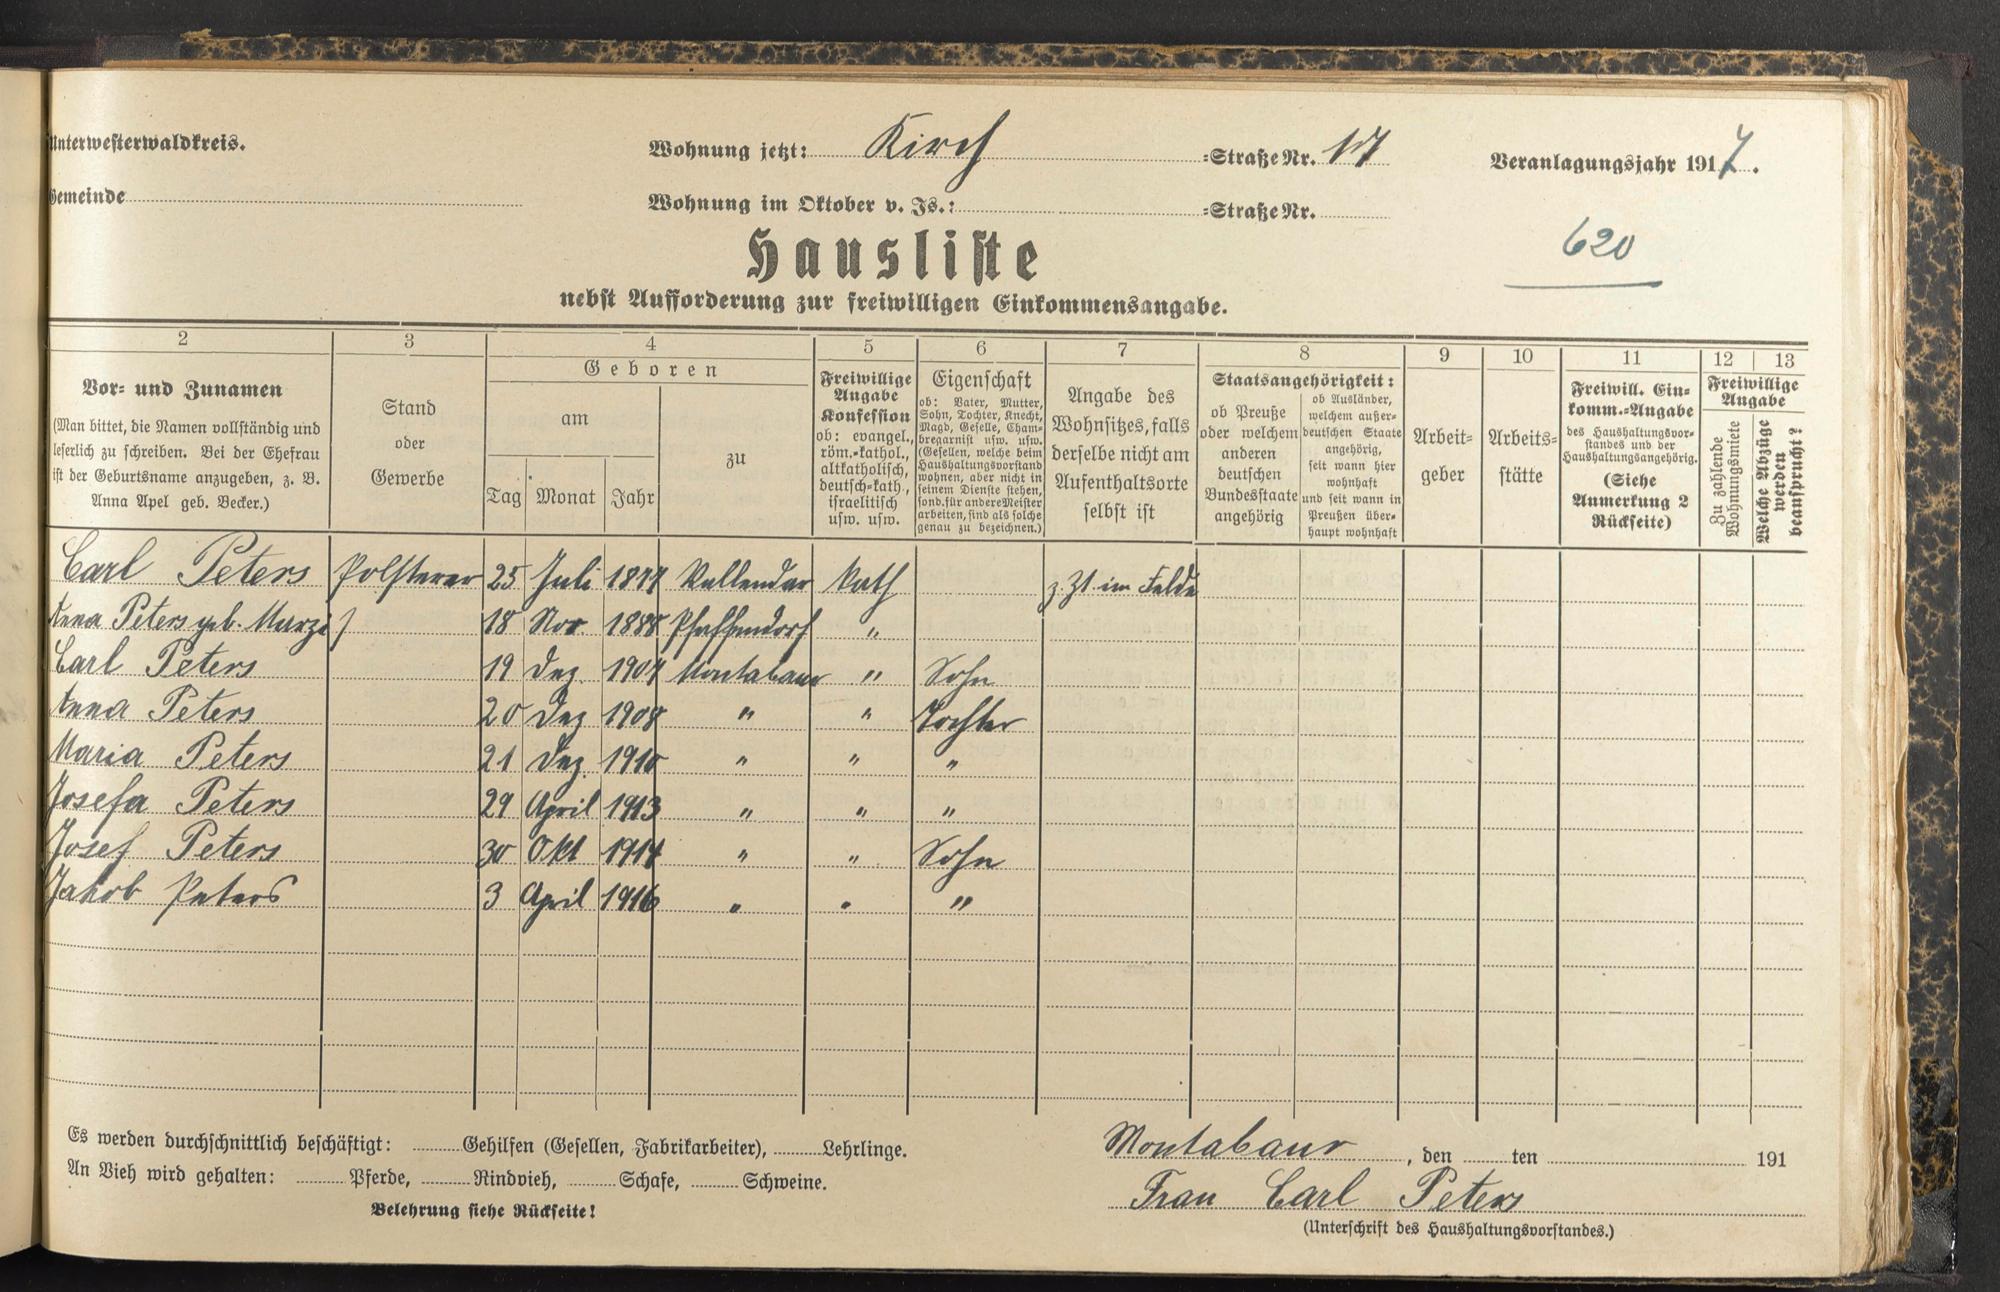 Unterwesterwaldkreis.
Wohnung jetzt: Kirch =Straße Nr. 17
Veranlagungsjahr 1917.
Gemeinde
Wohnung im Oktober v. Js.: =Straße Nr.
620
Hausliste
nebst Aufforderung zur freiwilligen Einkommensangabe.
2 3 4 5 6 7 8 9 10 11 12 13
Vor- und Zunamen
(Man bittet, die Namen vollständig und
leserlich zu schreiben. Bei der Ehefrau
ist der Geburtsname anzugeben, z. B.
Anna Apel geb. Becker.)
Stand
oder
Gewerbe
Geboren
am
Tag Monat Jahr
zu
Freiwillige
Angabe
Konfession
ob: evangel.,
röm.-kathol.,
altkatholisch,
deutsch-kath.,
israelitisch
usw. usw.
Eigenschaft
ob: Vater, Mutter,
Sohn, Tochter, Knecht,
Magd, Geselle, Cham-
bregarnist usw. usw.
(Gesellen, welche beim
Haushaltungsvorstand
wohnen, aber nicht in
seinem Dienste stehen,
sond. für andere Meister
arbeiten, sind als solche
genau zu bezeichnen.)
Angabe des
Wohnsitzes, falls
derselbe nicht am
Aufenthaltsorte
selbst ist
Staatsangehörigkeit:
ob Preuße
oder welchem
anderen
deutschen
Bundesstaate
angehörig
ob Ausländer,
welchem außer-
deutschen Staate
angehörig,
seit wann hier
wohnhaft
und seit wann in
Preußen über-
haupt wohnhaft
Arbeit-
geber
Arbeits-
stätte
Freiwill. Ein-
komm.-Angabe
des Haushaltungsvor-
standes und der
Haushaltungsangehörig.
(Siehe
Anmerkung 2
Rückseite)
Freiwillige
Angabe
Zu zahlende
Wohnungsmiete
Welche Abzüge
werden
beansprucht?
Carl Peters Polsterer 25 Juli 1877 Vallendar kath z. Zt. im Felde
Anna Peters geb. 18 Nov. 1888 Pfaffendorf "
Carl Peters 19 Dez. 1907 Montabaur " Sohn
Anna Peters 20 Dez 1908 " " Tochter
Maria Peters 21 Dez. 1910 " " "
Josefa Peters 29 April 1913 " " "
Josef Peters 30 Okt 1914 " " Sohn
Jakob Peters 3 April 1916 " " "
Es werden durchschnittlich beschäftigt: Gehilfen (Gesellen, Fabrikarbeiter), Lehrlinge.
An Vieh wird gehalten: Pferde, Rindvieh, Schafe, Schweine.
Belehrung siehe Rückseite!
Montabaur, den ten 191
Frau Carl Peters
(Unterschrift des Haushaltungsvorstandes.)